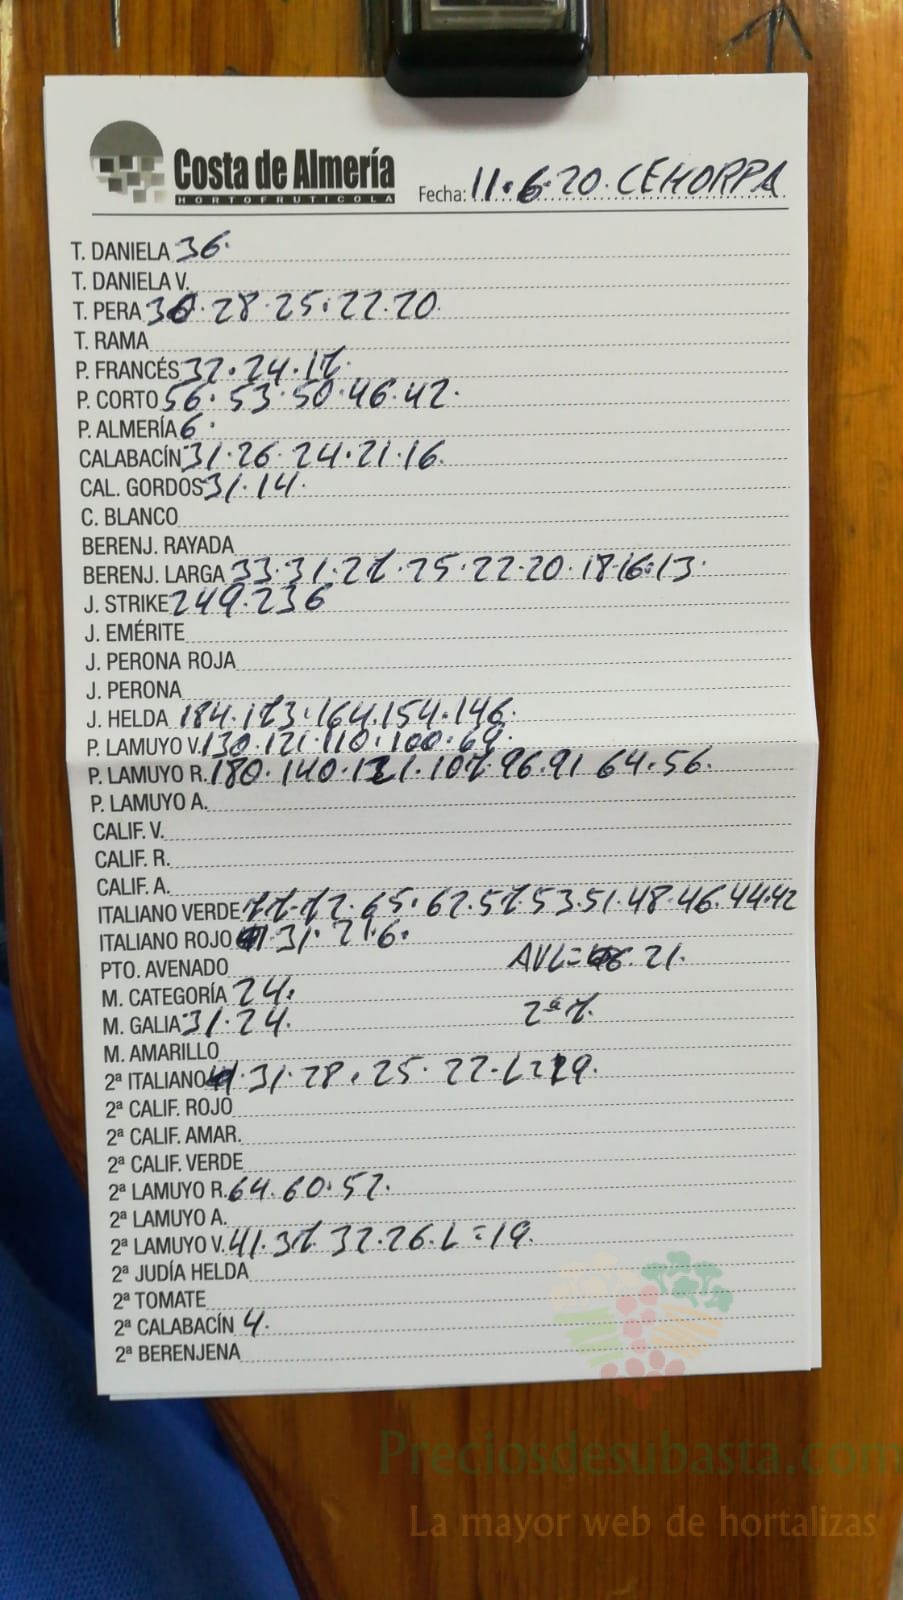 Costa de Almería
HORTOFRUTICOLA
Fecha: 11.6.20. CEHORPA
T. DANIELA 36.
T. DANIELA V.
T. PERA 30.28.25.22.20.
T. RAMA
P. FRANCÉS 32.24.17.
P. CORTO 56.53.50.46.42.
P. ALMERÍA 6.
CALABACÍN 31.26.24.21.16.
CAL. GORDOS 31.14.
C. BLANCO
BERENJ. RAYADA
BERENJ. LARGA 33.31.27.25.22.20.18.16.13.
J. STRIKE 249.236
J. EMÉRITE
J. PERONA ROJA
J. PERONA
J. HELDA 184.173.164.154.146.
P. LAMUYO V. 130.121.110.100.69.
P. LAMUYO R. 180.140.121.107.96.91 64.56.
P. LAMUYO A.
CALIF. V.
CALIF. R.
CALIF. A.
ITALIANO VERDE 77.72.65.62.57.53.51.48.46.44.42
ITALIANO ROJO 31.21.6.
PTO. AVENADO AVL= 21.
M. CATEGORÍA 24.
M. GALIA 31.24. 2ª 7.
M. AMARILLO
2ª ITALIANO 31.28.25.22.L=19.
2ª CALIF. ROJO
2ª CALIF. AMAR.
2ª CALIF. VERDE
2ª LAMUYO R. 64.60.52.
2ª LAMUYO A.
2ª LAMUYO V. 41.37 32.26.L=19.
2ª JUDÍA HELDA
2ª TOMATE
2ª CALABACÍN 4.
2ª BERENJENA
Preciosdesubasta.com
La mayor web de hortalizas